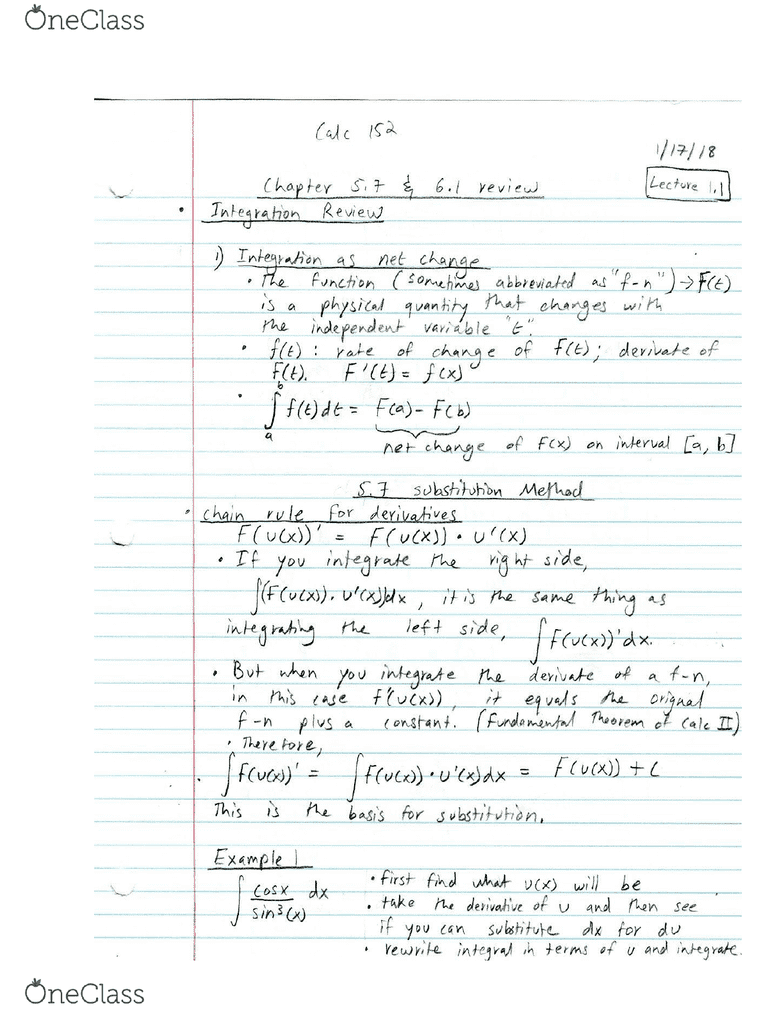 OneClass
Calc 152
1/17/18
Chapter 5.7 & 6.1 review
Lecture 1.1
• Integration Review
1) Integration as net change
• The function (sometimes abbreviated as "f-n") → F(t)
is a physical quantity that changes with
the independent variable "t".
• f(t) : rate of change of F(t); derivate of
F(t). F'(t) = f(x)
• ∫_a^b f(t)dt = F(a) - F(b)
net change of F(x) on interval [a, b]
5.7 substitution Method
• chain rule for derivatives
F(u(x))' = F(u(x)) • u'(x)
• If you integrate the right side,
∫(F(u(x)). u'(x))dx, it is the same thing as
integrating the left side, ∫F(u(x))'dx.
• But when you integrate the derivate of a f-n,
in this case f'(u(x)), it equals the orignal
f-n plus a constant. (Fundamental Theorem of Calc II)
• Therefore,
∫F(u(x))' = ∫F(u(x)) • u'(x)dx = F(u(x)) + C
This is the basis for substitution.
Example 1
∫ cosx / sin³(x) dx
• first find what u(x) will be
• take the derivative of u and then see
if you can substitute dx for du
• rewrite integral in terms of u and integrate.
OneClass